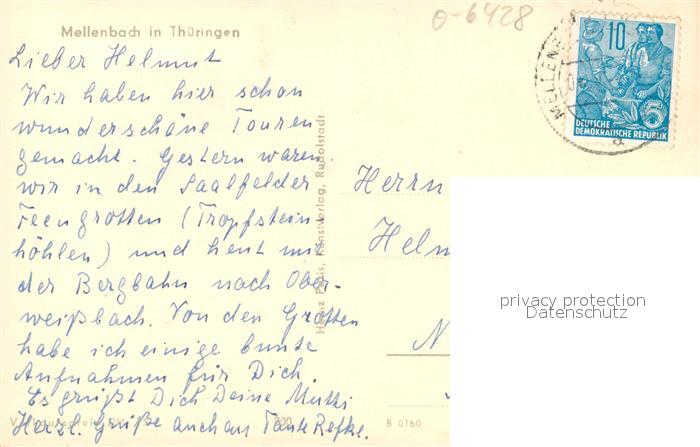 Mellenbach in Thüringen
o-6428
Lieber Helmut
Wir haben hier schon
wunderschöne Touren
gemacht. Gestern waren
wir in den Saalfelder
Feengrotten (Tropfstein-
höhlen) und heut mit
der Bergbahn nach Ober-
weißbach. Von den Grotten
habe ich einige bunte
Aufnahmen für Dich.
Es grüßt Dich Deine Mutti
Herzl. Grüße auch an Tante Refke.
B 0160
Kunstverlag, Rudolstadt
10
DEUTSCHE
DEMOKRATISCHE REPUBLIK
Herrn
Helm
N
privacy protection
Datenschutz